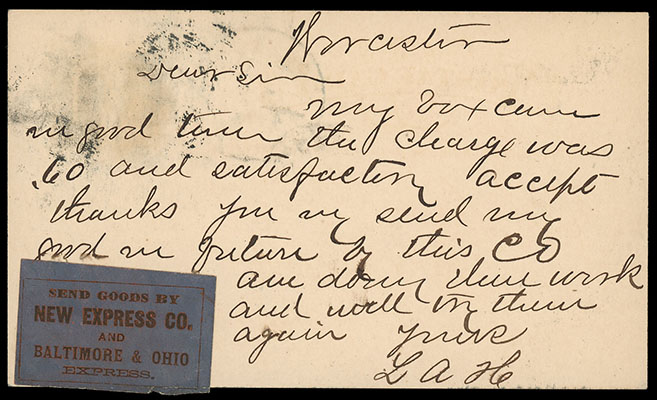 Worcester
Dear Sir
my box came
in good time the charge was
.60 and satisfactory accept
thanks you in send my
good in future by this CO
are doing their work
and will try them
again yours
L A H
SEND GOODS BY
NEW EXPRESS CO.
AND
BALTIMORE & OHIO
EXPRESS.